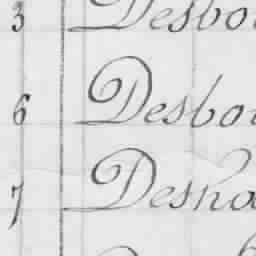 3 Desbou
6 Desbou
7 Desna